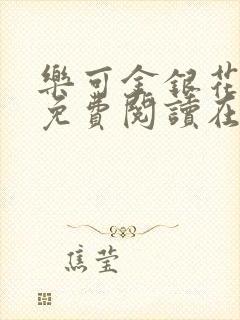 樂可金銀花
免費閱讀在
焦莹